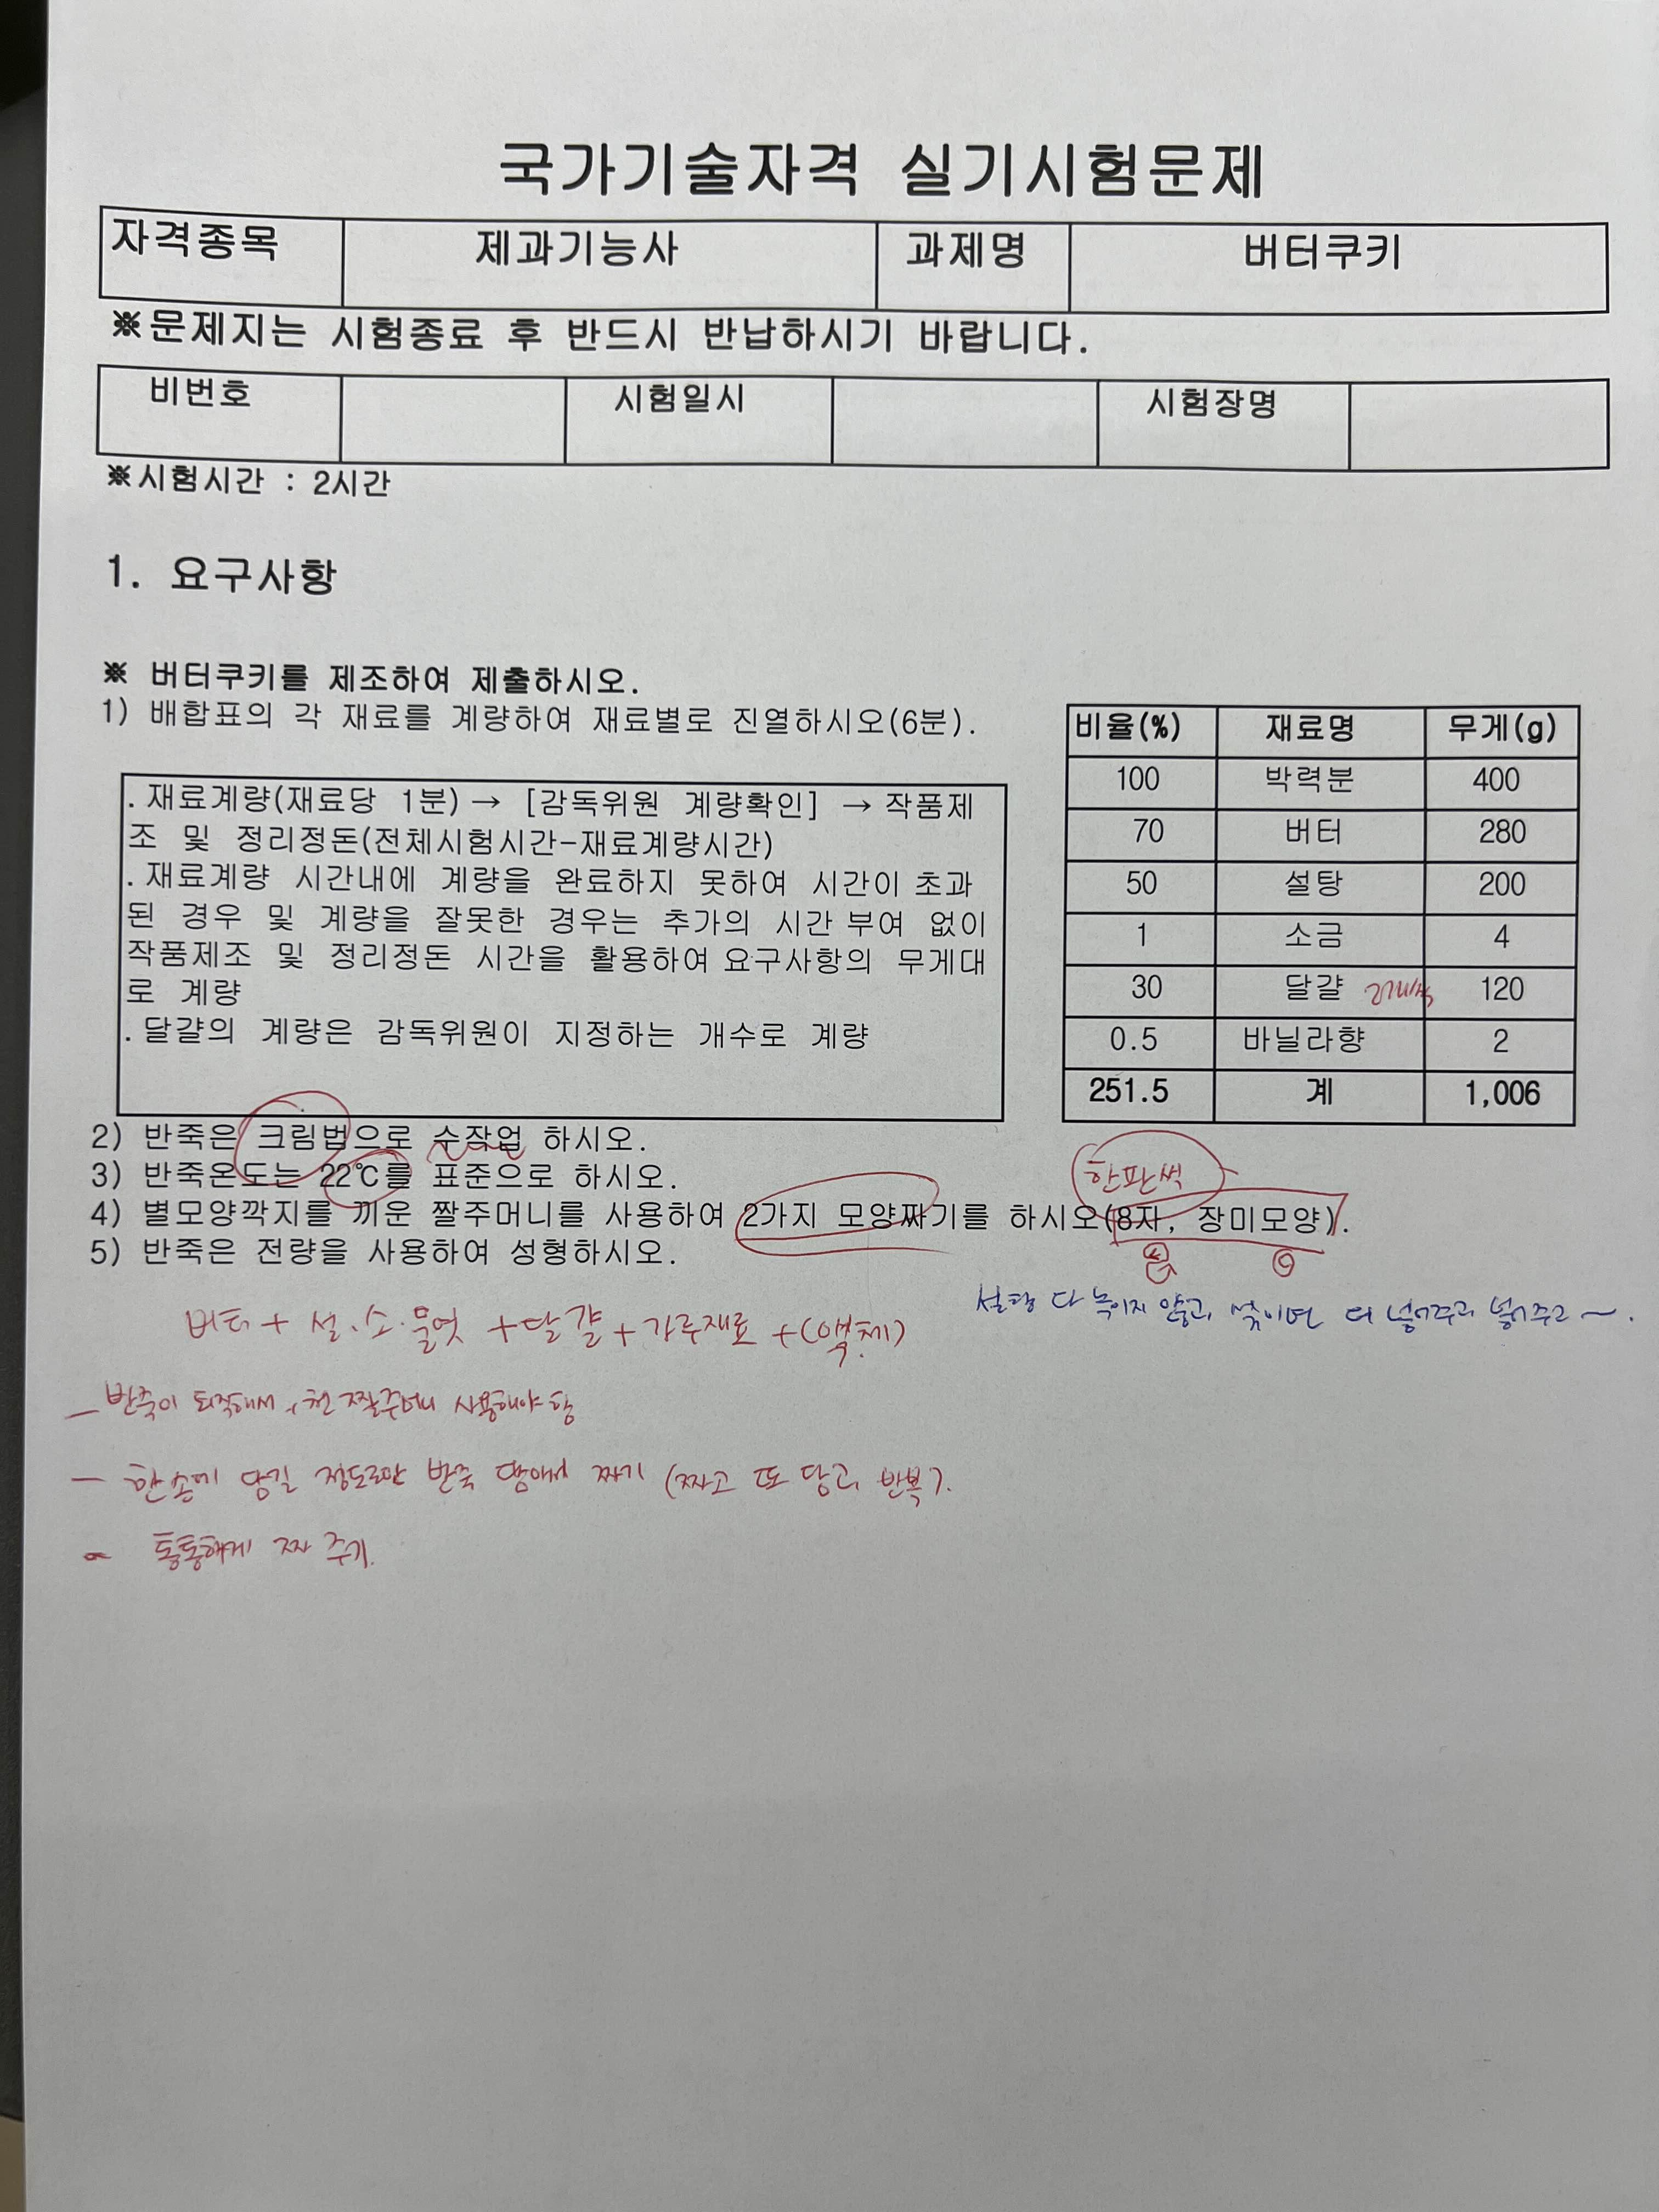 국가기술자격 실기시험문제
자격종목 제과기능사 과제명 버터쿠키
※문제지는 시험종료 후 반드시 반납하시기 바랍니다.
비번호 시험일시 시험장명
※시험시간 : 2시간
1. 요구사항
※ 버터쿠키를 제조하여 제출하시오.
1) 배합표의 각 재료를 계량하여 재료별로 진열하시오(6분).
. 재료계량(재료당 1분)→ [감독위원 계량확인] → 작품제
조 및 정리정돈(전체시험시간-재료계량시간)
. 재료계량 시간내에 계량을 완료하지 못하여 시간이 초과
된 경우 및 계량을 잘못한 경우는 추가의 시간 부여 없이
작품제조 및 정리정돈 시간을 활용하여 요구사항의 무게대
로 계량
. 달걀의 계량은 감독위원이 지정하는 개수로 계량
비율(%) 재료명 무게(g)
100 박력분 400
70 버터 280
50 설탕 200
1 소금 4
30 달걀 2개씩 120
0.5 바닐라향 2
251.5 계 1,006
2) 반죽은 크림법으로 수작업 하시오.
3) 반죽온도는 22℃를 표준으로 하시오.
한판씩
4) 별모양깍지를 끼운 짤주머니를 사용하여 2가지 모양짜기를 하시오(8자, 장미모양).
5) 반죽은 전량을 사용하여 성형하시오.
설탕 다 녹이지 않고, 섞이면 더 넣어주고 넣어주고 ~.
버터 + 설.소.물엿 + 달걀 + 가루재료 + (액체)
- 반죽이 되직해서, 천 짤주머니 사용해야 함
- 한손에 담길 정도로만 반죽 담아서 짜기 (짜고 또 담고, 반복).
- 통통하게 짜 주기.